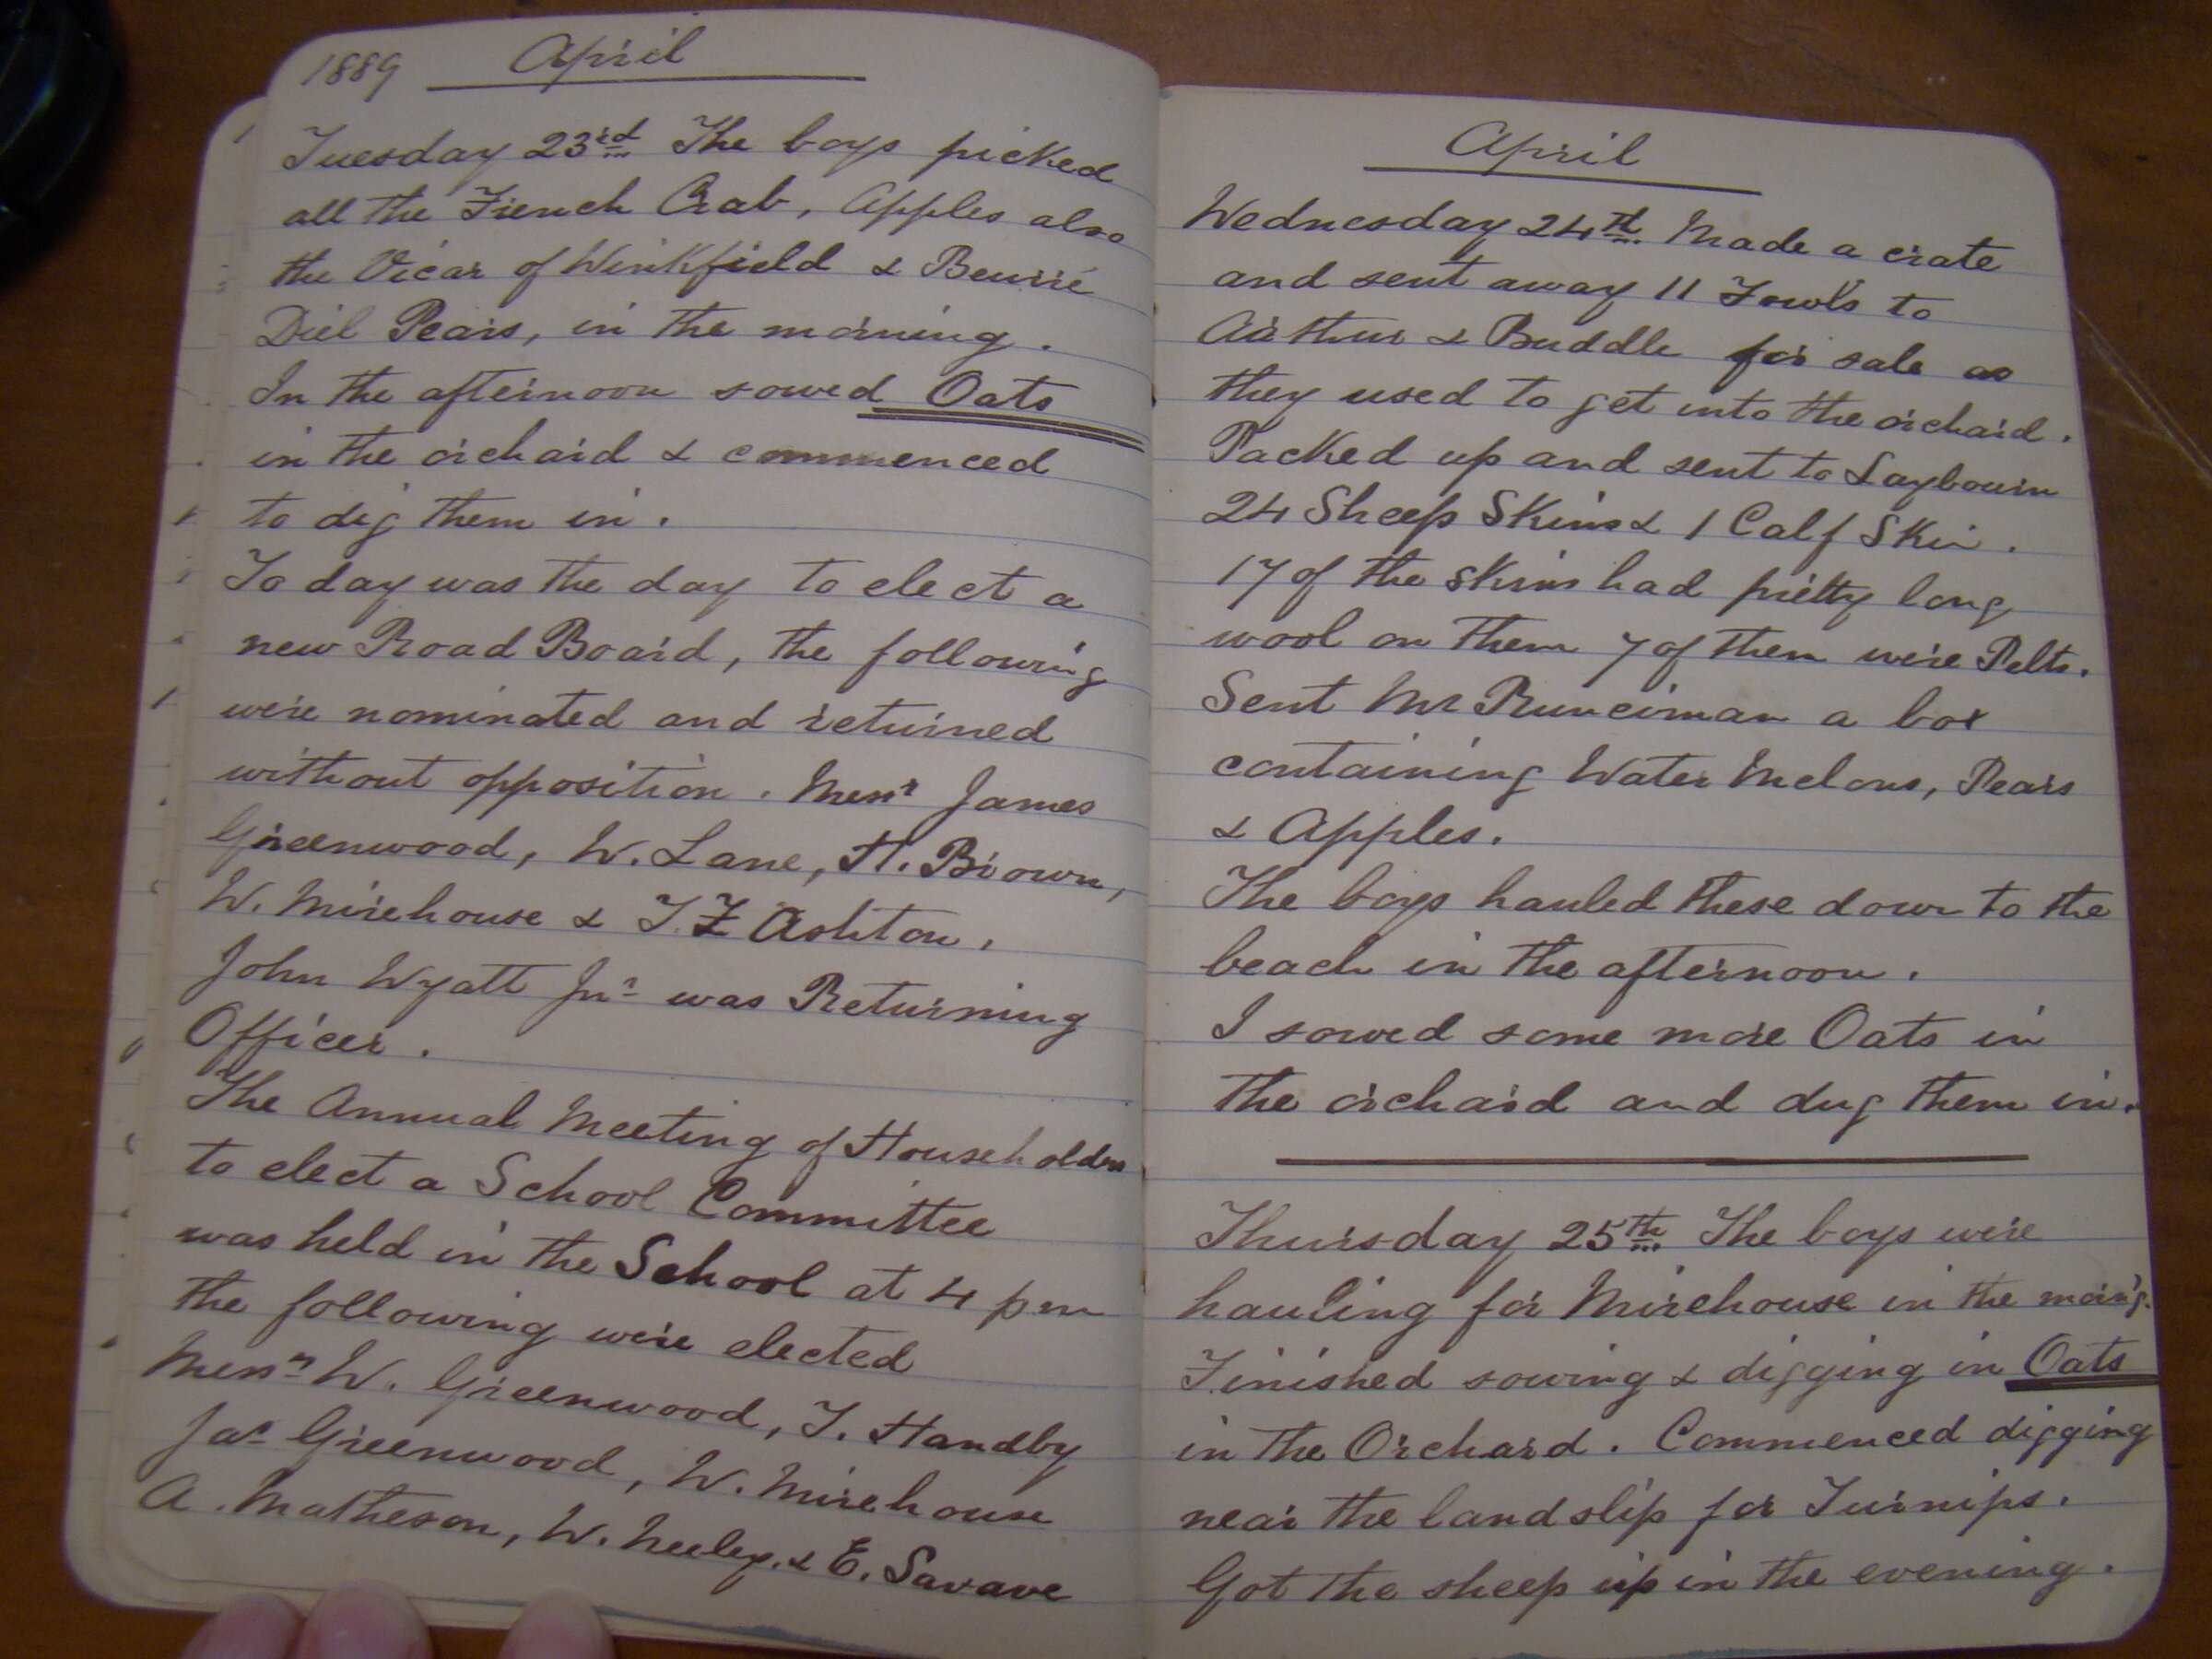 1889 April
Tuesday 23rd The boys picked
all the French Crab, Apples also
the Vicar of Winkfield & Beurré
Diel Pears, in the morning.
In the afternoon sowed Oats
in the orchard & commenced
to dig them in.
To day was the day to elect a
new Road Board, the following
were nominated and returned
without opposition. Messrs James
Greenwood, W. Lane, H. Brown,
W. Mirehouse & T. F Ashton.
John Wyatt Jnr was Returning
Officer.
The Annual Meeting of Householders
to elect a School Committee
was held in the School at 4 pm
the following were elected
Messrs W. Greenwood, T. Handby
Jas Greenwood, W. Mirehouse
A. Matheson, W. Neeley. & E. Savave
April
Wednesday 24th Made a crate
and sent away 11 Fowls to
Arthur & Buddle for sale as
they used to get into the orchard.
Packed up and sent to Laybourn
24 Sheep Skins & 1 Calf Skin.
17 of the skins had pretty long
wool on them 7 of them were Pelts.
Sent Mr Runciman a box
containing Water Melons, Pears
& Apples.
The boys hauled these down to the
beach in the afternoon.
I sowed some more Oats in
the orchard and dug them in.
Thursday 25th The boys were
hauling for Mirehouse in the morng.
Finished sowing & digging in Oats
in the Orchard. Commenced digging
near the landslip for Turnips.
Got the sheep up in the evening.